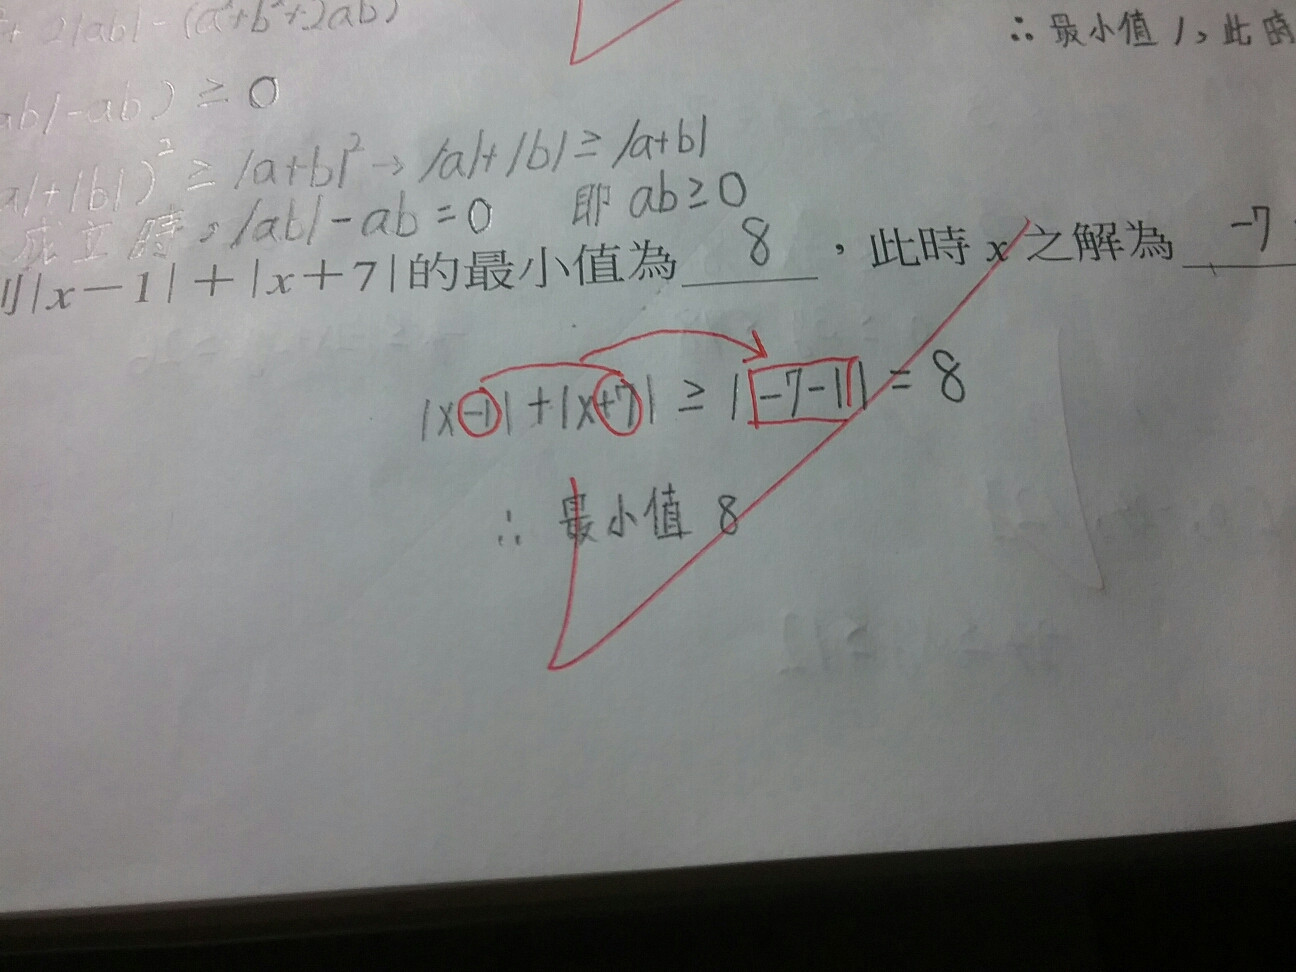 + 2|ab| - (a²+b²+2ab)
∴ 最小值 1, 此時
ab|-ab) ≥ 0
a|+|b|)² ≥ |a+b|² → |a|+|b| ≥ |a+b|
成立時, |ab|-ab = 0 即 ab ≥ 0
|x-1|+|x+7|的最小值為 8 ,此時 x 之解為 -7
|x-1| + |x+7| ≥ | -7-1 | = 8
∴ 最小值 8